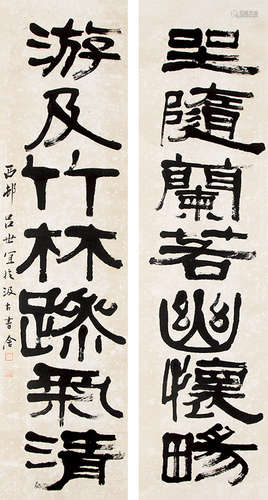 坐隨蘭若幽懷暢
游及竹林踈氣清
西邨呂世宜於汲古書舍